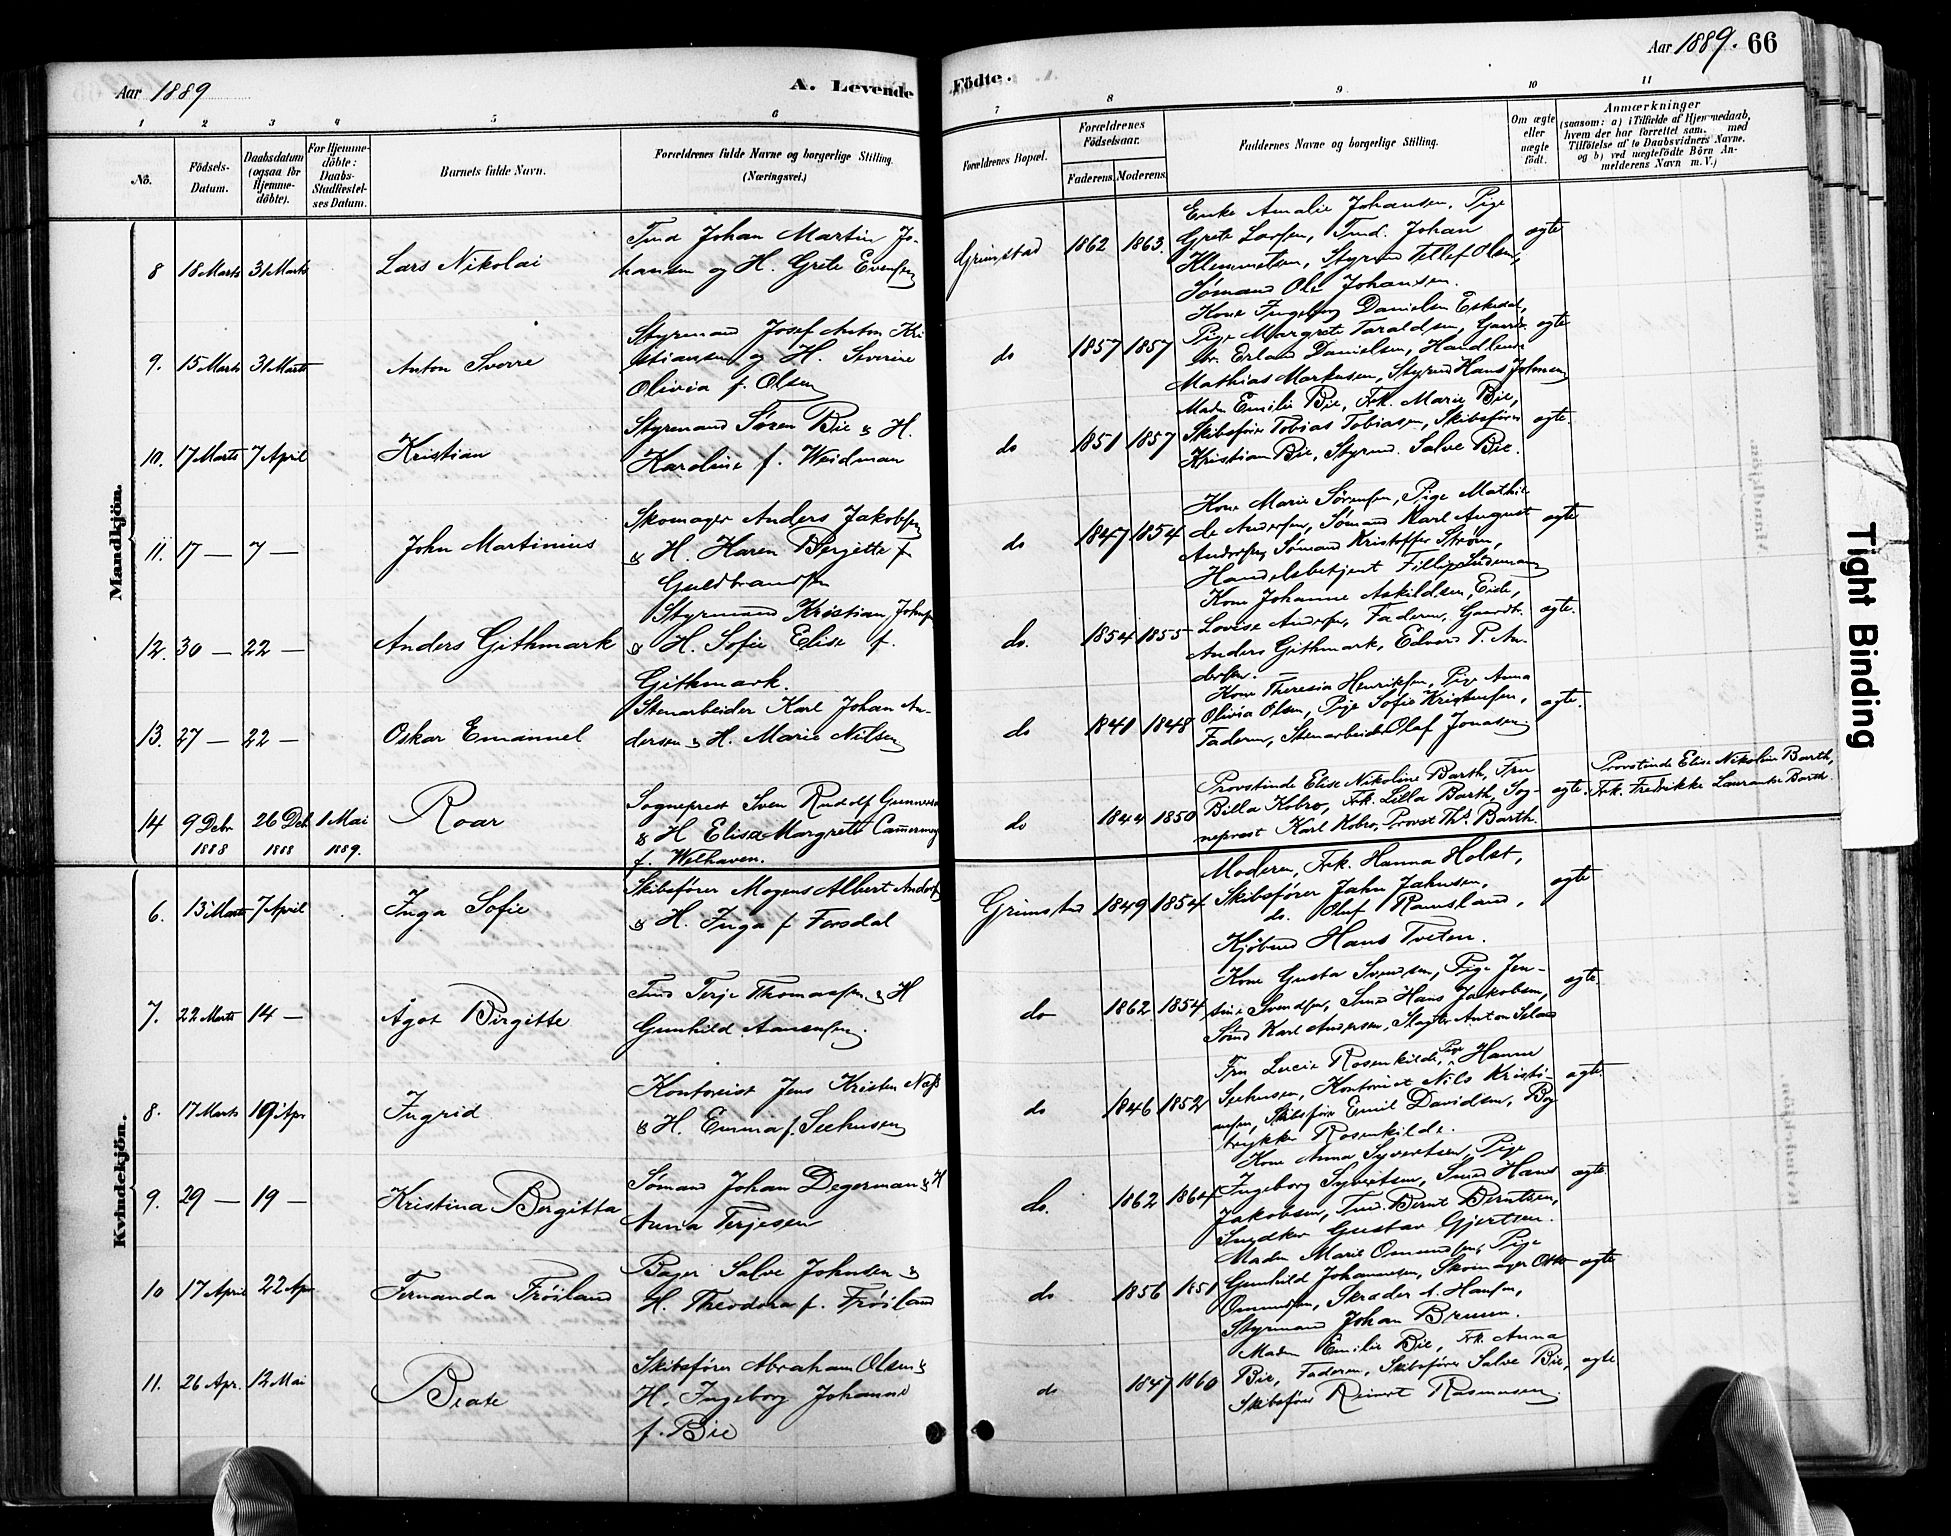 Aar 1889
A. Levende
Födte.
Aar 1889.
66
1 2 3 4 5 6
7 8 9 10 11
No.
Födsels-
Datum.
Daabsdatum
(ogsaa for
Hjemme-
döbte).
For Hjemme-
döbte:
Daabs-
Stadfæstel-
ses Datum.
Barnets fulde Navn.
Forældrenes fulde Navne og borgerlige Stilling.
(Næringsvei.)
Forældrenes Bopæl.
Forældrenes
Födselsaar.
Faderens.
Moderens.
Faddernes Navne og borgerlige Stilling.
Om ægte
eller
uægte
födt.
Anmærkninger
(saasom: a) i Tilfælde af Hjemmedaab,
hvem der har forrettet sam. med
Tilföielse af to Daabsvidners Navne,
og b) ved uægtefödte Börn An-
melderens Navn m. V.)
Mandkjön.
8 18 Marts 31 Marts Lars Nikolai
Tmd Johan Martin Jo-
hansen og H. Grete Evensen
Grimstad 1862 1863.
Enke Amalie Johansen, Pige
Grete Larsen, Tmd. Johan
Klemmetsen, Styrmd Tellef Olsen,
Sømand Ole Johansen.
ægte
9. 15 Marts 31 Marts Anton Sverre
Styrmand Josef Anton Kri
stiansen og H. Severine
Olivia f. Olsen
do 1857 1857
Kone Ingeborg Danielsen Eskedal,
Pige Margrete Taraldsen, Gaard-
br. Erland Danielsen, Handlende
Mathias Markusen, Styrmd Hans Johnsen
ægte
10. 17 Marts 7 April Kristian
Styrmand Søren Bie & H.
Karoline f. Weidman
do 1851 1857
Madm Emilie Bie, Frk. Marie Bie,
Skibsfører Tobias Tobiasen, Skibsfører
Kristian Bie, Styrmd. Salve Bie.
ægte.
11. 17 — 7 — John Martinius
Skomager Anders Jakobsen
& H. Karen Bergitte f
Guldbrandsen
do 1847 1854
Kone Marie Sørensen, Pige Mathil
de Andersen, Sømand Karl August
Andersen, Sømand Kristoffer Strøm,
Handelsbetjent Fillip
ægte
12. 30 — 22 — Anders Githmark
Styrmand Kristian Johnsen
& H. Sofie Elise f.
Githmark.
do. 1854 1855
Kone Johanne Askildsen, Eide,
Lovise Andersen, Faderen, Gaardbr.
Anders Githmark, Edvard P. An-
dersen.
ægte.
13. 27 — 22 — Oskar Emanuel
Stenarbeider Karl Johan An-
dersen & H. Marie Nilsen
do 1841 1848
Kone Theresia Henriksen, Pige Anna
Olivia Olsen, Pige Sofie Kristensen,
Faderen, Stenarbeider Olaf Jonasen
ægte.
14 9 Debr 1888 26 Deb 1888 1 Mai 1889. Roar
Sogneprest Sven Rudolf Gunnerse
& H Elisa Margrete Cammermeyer
f. Welhaven.
do 1844 1850
Provstinde Elise Nikoline Barth, Fru
Billa Kobro, Frk. Lilla Barth, Sog-
neprest Karl Kobro, Provst Ths. Barth.
ægte.
Provstinde Elise Nikoline Barth,
Frk. Fredrikke Laurantse Barth.
Kvindekjön.
6. 13 Marts 7 April Inga Sofie
Skibsfører Mogens Albert Anders
& H. Inga f Forsdal
Grimstad 1849 1854
Moderen, Frk. Hanna Holst,
Skibsfører Jahn Jahnsen,
do. Oluf Ramsland,
Kjøbmd Hans Tveten.
ægte
7. 22 Marts 14 — Ågot Birgitte
Tmd Terje Thomassen & H
Gunhild Aanensen.
do 1862 1854
Kone Gusta Svendsen, Pige Jen-
sine Svendsen, Smd Hans Jakobsen,
Sømd Karl Andersen, Slagter Anton Seland
ægte.
8. 17 Marts 19 Apr Ingrid
Kontorist Jens Kristen Næss
& H. Emma f. Seehusen
do 1846 1852
Fru Lucie Rosenkilde, Pige Hanne
Seehusen, Kontorist Nils Kristi-
ansen, Skibsfører Emil Davidsen, Bog
trykker Rosenkilde.
ægte.
9. 29 — 19 — Kristina Birgitta
Sømand Johan Degerman & H
Anna Terjesen
do. 1862 1864
Kone Anna Syvertsen, Pige
Ingeborg Syvertsen, Smd Hans
Jakobsen, Tmd. Bernt Berntsen,
Gustav Gjertsen.
ægte
10 17 April 22 Apr Fernanda Frøiland
Bager Salve Johnsen &
H. Theodora f. Frøiland
do 1856 1851
Madm Marie Omundsen, Pige
Gunhild Johannesen, Skomager Otto
Omundsen, Skræder A. Hansen,
Styrmand Johan Bruun.
ægte
11. 26 Apr. 12 Mai Beate
Skibsfører Abraham Olsen &
H. Ingeborg Johanne
f. Bie
do 1847 1860
Madm Emilie Bie, Frk. Anna
Bie, Faderen, Skibsfører Salve Bie,
Skibsfører Reinert Rasmussen.
ægte
Tight Binding